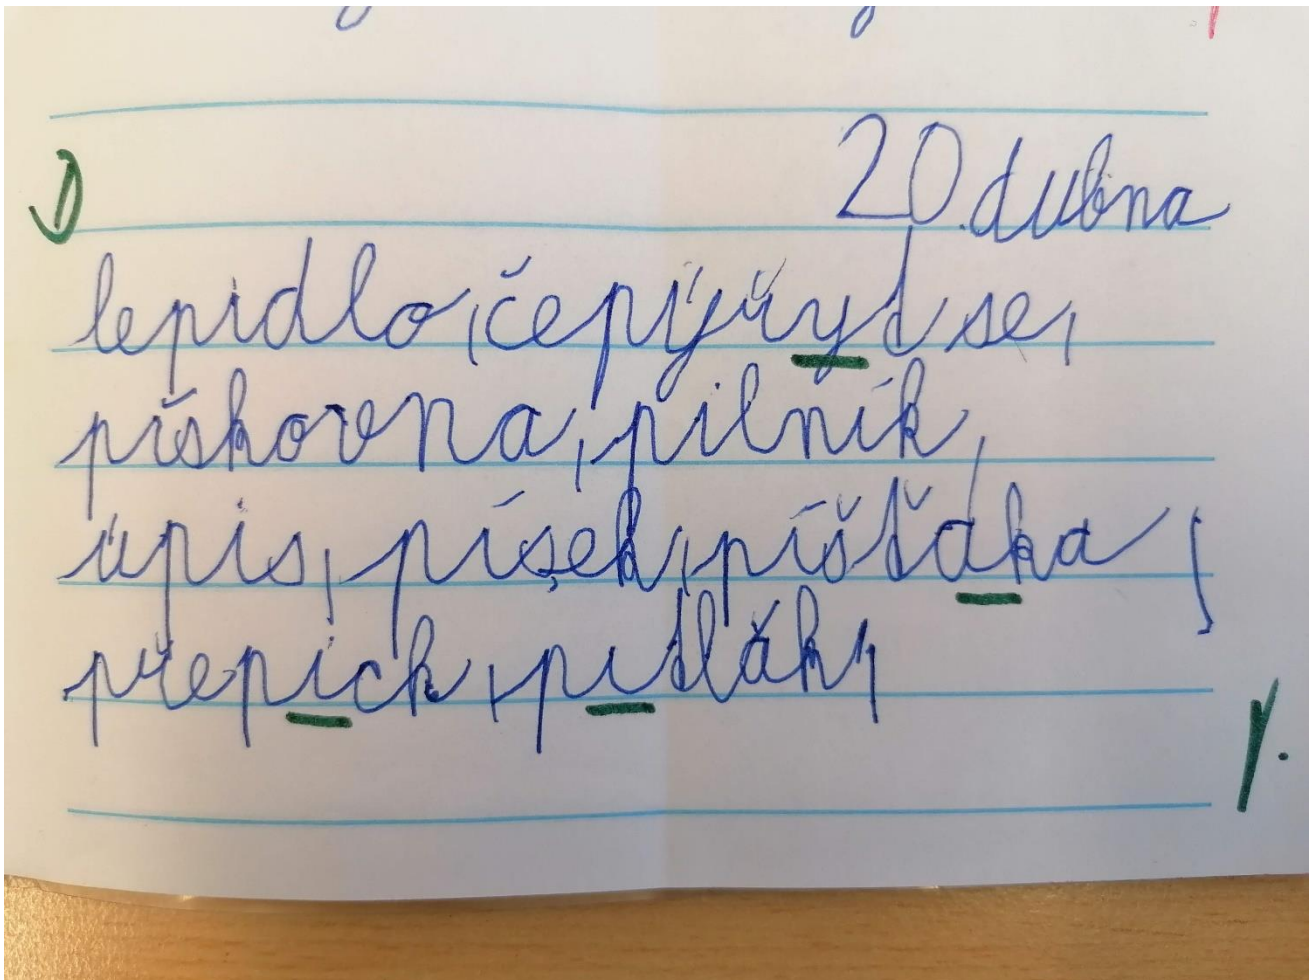 20. dubna
lepidlo, čepýřyt se,
pískovna, pilník,
úpis, písek, píšťaka,
přepich, pidlák,